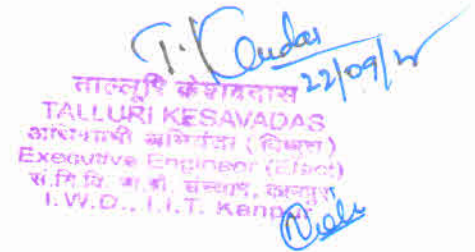 22/09/
ताल्लूरि केशवदास
TALLURI KESAVADAS
अधिशाषी अभियंता (विद्युत)
Executive Engineer (Elect)
सं.नि.वि. भा.प्रौ. संस्थान, कानपुर
I.W.D., I.I.T. Kanpur